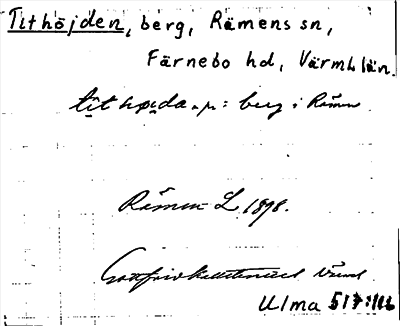 Tithöjden, berg, Rämens sn,
Färnebo hd, Värml. län.
tìt høida n.pr: berg i Rämen
Rämen L 1898.
Gottfrid Kallstenius Värml.
Ulma 517:116